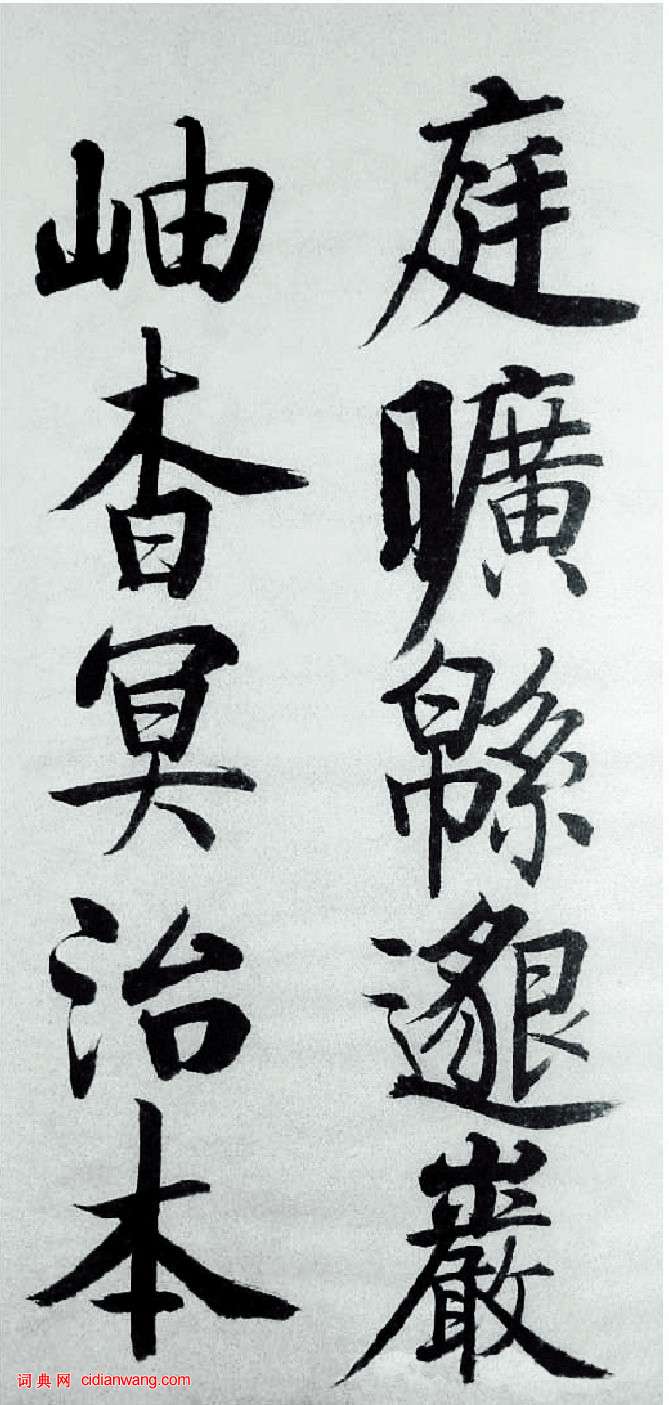 庭曠緜邈巖
岫杳冥治本
词典网 cidianwang.com